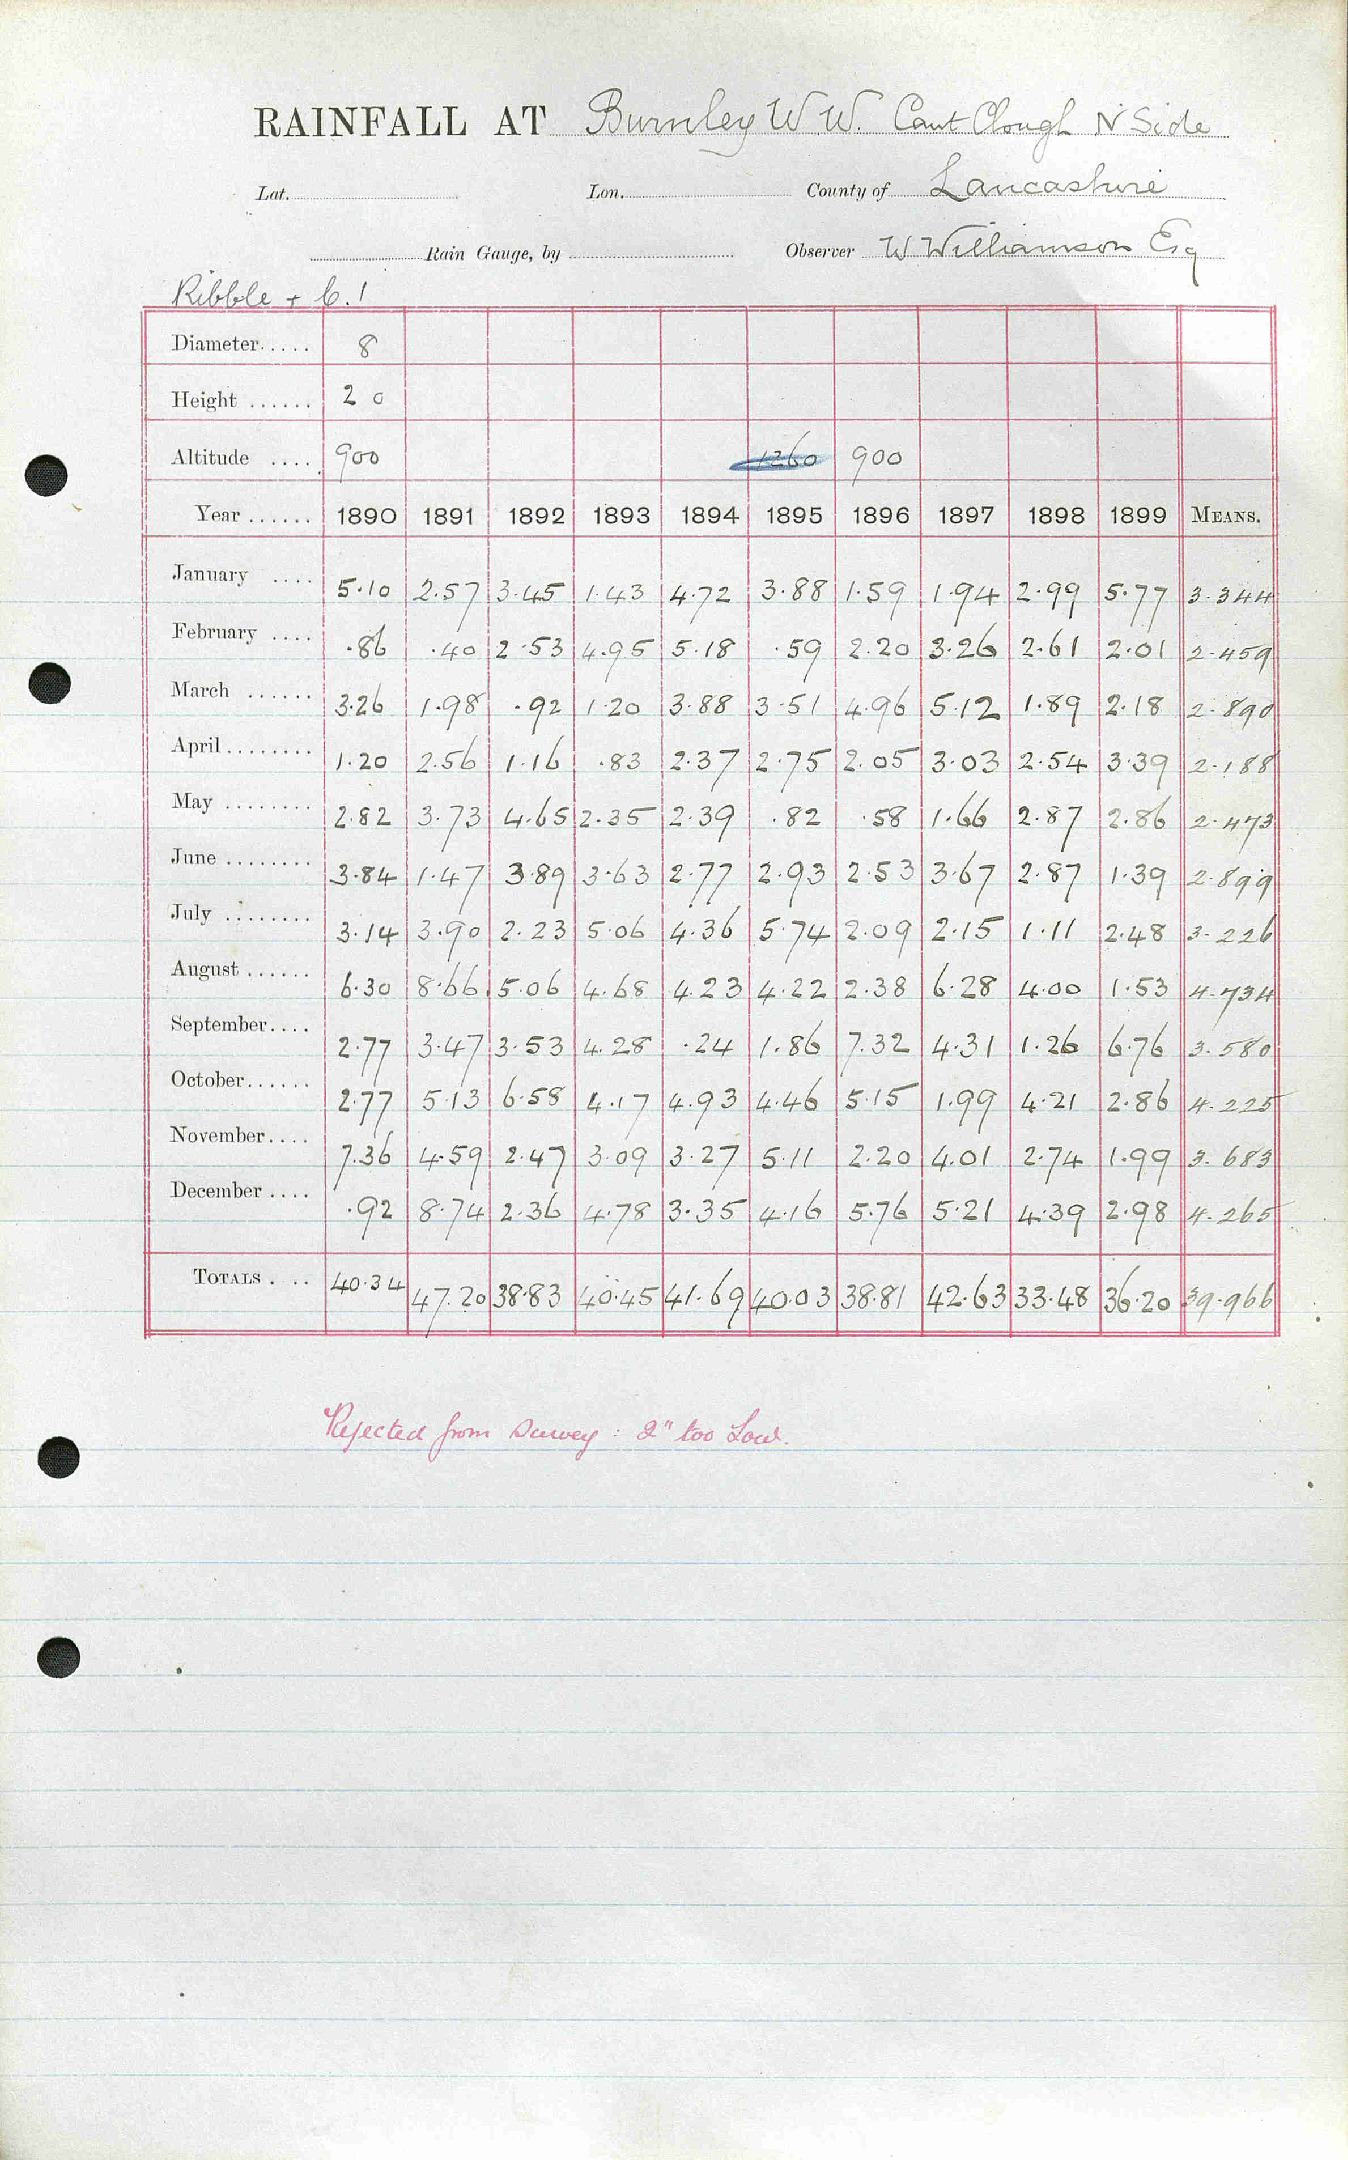 RAINFALL AT Burnley W W. Cant Clough N Side
Lat. Lon. County of Lancashire
Rain Gauge, by Observer W Williamson Esq
Ribble + 6.1
Diameter..... 8
Height ...... 2 0
Altitude .... 900 1260 900
Year ...... 1890 1891 1892 1893 1894 1895 1896 1897 1898 1899 MEANS.
January .... 5.10 2.57 3.45 1.43 4.72 3.88 1.59 1.94 2.99 5.77 3.344
February .... .86 .40 2.53 4.95 5.18 .59 2.20 3.26 2.61 2.01 2.459
March ...... 3.26 1.98 .92 1.20 3.88 3.51 4.96 5.12 1.89 2.18 2.890
April........ 1.20 2.56 1.16 .83 2.37 2.75 2.05 3.03 2.54 3.39 2.188
May ........ 2.82 3.73 4.65 2.35 2.39 .82 .58 1.66 2.87 2.86 2.473
June ........ 3.84 1.47 3.89 3.63 2.77 2.93 2.53 3.67 2.87 1.39 2.899
July ........ 3.14 3.90 2.23 5.06 4.36 5.74 2.09 2.15 1.11 2.48 3.226
August...... 6.30 8.66 5.06 4.68 4.23 4.22 2.38 6.28 4.00 1.53 4.734
September.... 2.77 3.47 3.53 4.28 .24 1.86 7.32 4.31 1.26 6.76 3.580
October...... 2.77 5.13 6.58 4.17 4.93 4.46 5.15 1.99 4.21 2.86 4.225
November.... 7.36 4.59 2.47 3.09 3.27 5.11 2.20 4.01 2.74 1.99 3.683
December .... .92 8.74 2.36 4.78 3.35 4.16 5.76 5.21 4.39 2.98 4.265
TOTALS . .. 40.34 47.20 38.83 40.45 41.69 40.03 38.81 42.63 33.48 36.20 39.966
Rejected from Survey : 2" too Low.